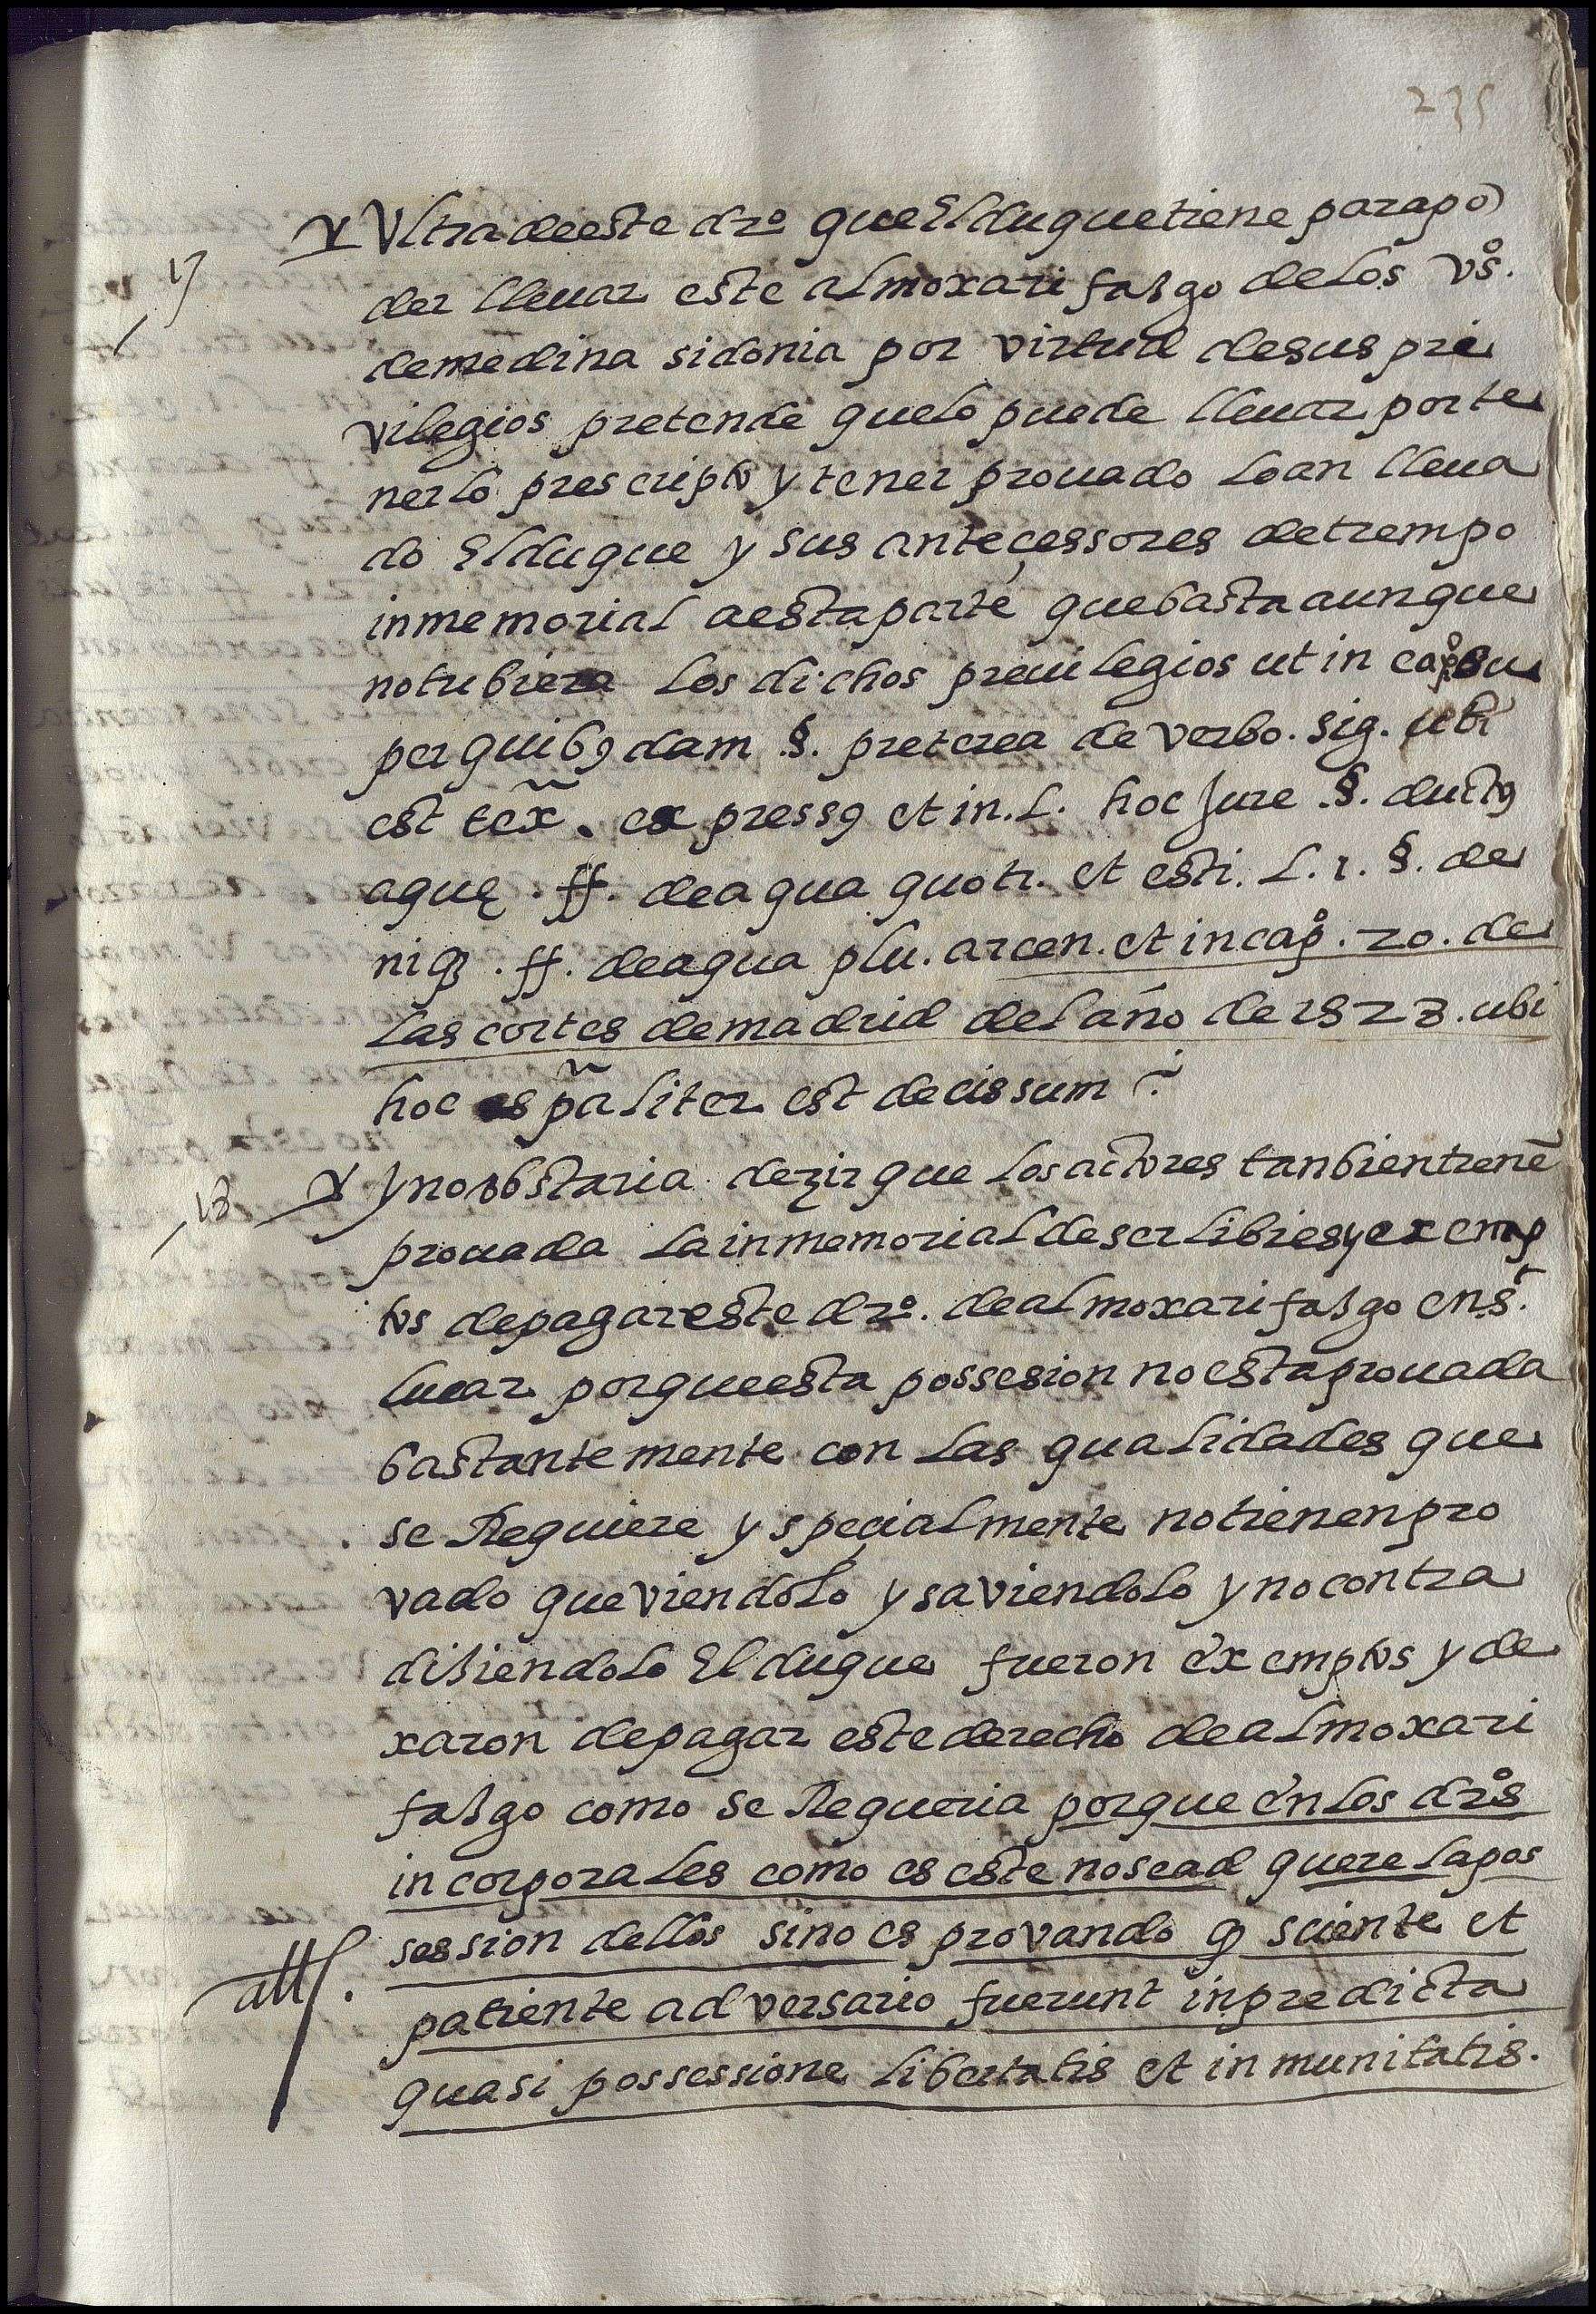 235
17 Y Ultra deeste drº que El duque tiene para po
der lleuar este almoxarifasgo delos vºs.
de medina sidonia por virtud de sus pre
vilegios pretende que lo puede lleuar por te
nerlo prescripto y tener prouado lo an lleua
do El duque y sus anteçessores de tiempo
inmemorial aesta parte que basta aunque
no tubiera los dichos preuilegios ut in capº su
per quibꝯdam §. preterea de verbo. sig. ubi
est tex̃. expressꝯ et in. L. hoc Jure §. ductꝯ
aquę. ff. de aqua quoti. et esti. L. 1. §. de
niqꝫ. ff. de aqua plu. arcen. et in capº. 20. de
las cortes de madrid del año de 1528. ubi
hoc esp̃aliter est decissum
18 Y y no obstaria dezir que los actores tanbien tienẽ
prouada la inmemorial de ser libres y exemp
tos de pagar este drº. de almoxarifasgo en sᵗ.
lucar porque esta possesion no esta prouada
bastantemente con las qualidades que
se Requiere y speçialmente no tienen pro
vado que viendolo y saviendolo y no contra
disiendolo El duque fueron exemptos y de
xaron de pagar este derecho de almoxari
fasgo como se Requeria porque en los drºs
incorporales como es este no se adquere la pos
session dellos sino es provando qꝫ sciente et
patiente adversario fuerunt in predicta
quasi possessione libertatis et inmunitatis.